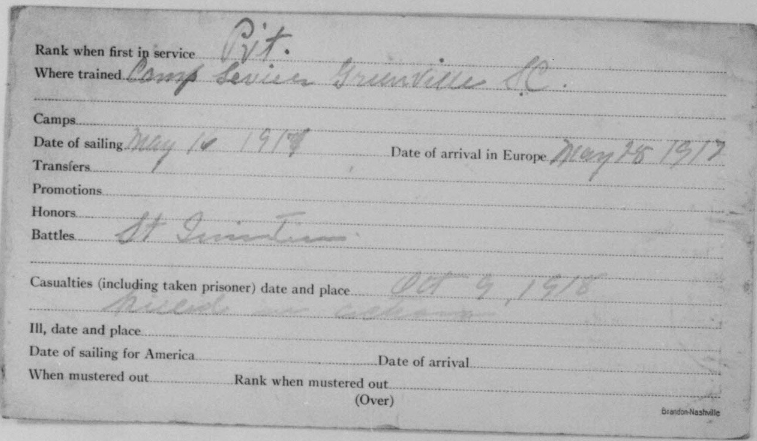 Rank when first in service Pvt.
Where trained Camp Sevier Greenville S.C.
Camps
Date of sailing May 16 1917 Date of arrival in Europe May 28 1917
Transfers
Promotions
Honors
Battles St Quintin
Casualties (including taken prisoner) date and place Oct 9, 1918
killed in action
Ill, date and place
Date of sailing for America Date of arrival
When mustered out Rank when mustered out
(Over)
Brandon-Nashville